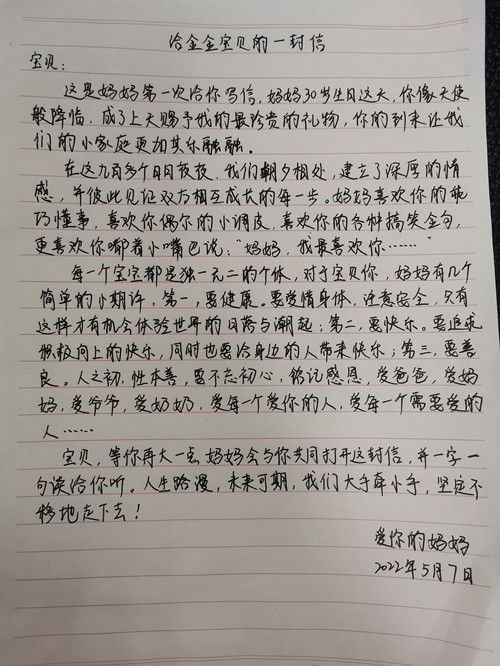 给金金宝贝的一封信
宝贝：
这是妈妈第一次给你写信，妈妈30岁生日这天，你像天使
般降临，成了上天赐予我的最珍贵的礼物，你的到来让我
们的小家庭更加其乐融融。
在这九百多个日日夜夜，我们朝夕相处，建立了深厚的情
感，并彼此见证双方相互成长的每一步。妈妈喜欢你的乖
巧懂事，喜欢你偶尔的小调皮，喜欢你的各种搞笑金句，
更喜欢你嘟着小嘴巴说：“妈妈，我最喜欢你……”
每一个宝宝都是独一元二的个体，对于宝贝你，妈妈有几个
简单的小期许，第一，要健康。要爱惜身体，注意安全，只有
这样才有机会体验世界的日落与潮起；第二，要快乐。要追求
积极向上的快乐，同时也要给身边的人带来快乐；第三，要善
良。人之初，性本善，要不忘初心，铭记感恩，爱爸爸，爱妈
妈，爱爷爷，爱奶奶，爱每一个爱你的人，爱每一个需要爱的
人……
宝贝，等你再大一点妈妈会与你共同打开这封信，并一字一
句读给你听。人生路漫，未来可期，我们大手牵小手，坚定不
移地走下去！
爱你的妈妈
2022年5月7日